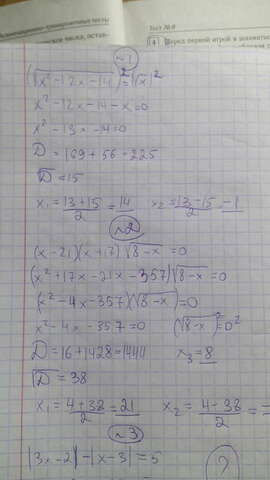 Тест № 8
4 Перед первой игрой в
№1
(√x²-12x-14)²=(√x)²
x²-12x-14-x=0
x²-13x-14=0
D=169+56=225
√D=15
x₁=(13+15)/2=14 x₂=(13-15)/2=-1
№2
(x-21)(x+17)√8-x=0
(x²+17x-21x-357)√8-x=0
(x²-4x-357)(√8-x)=0
x²-4x-357=0 (√8-x)²=0²
D=16+1428=1444 x₃=8
√D=38
x₁=(4+38)/2=21 x₂=(4-38)/2=
№3
|3x-2|-|x-3|=5
?